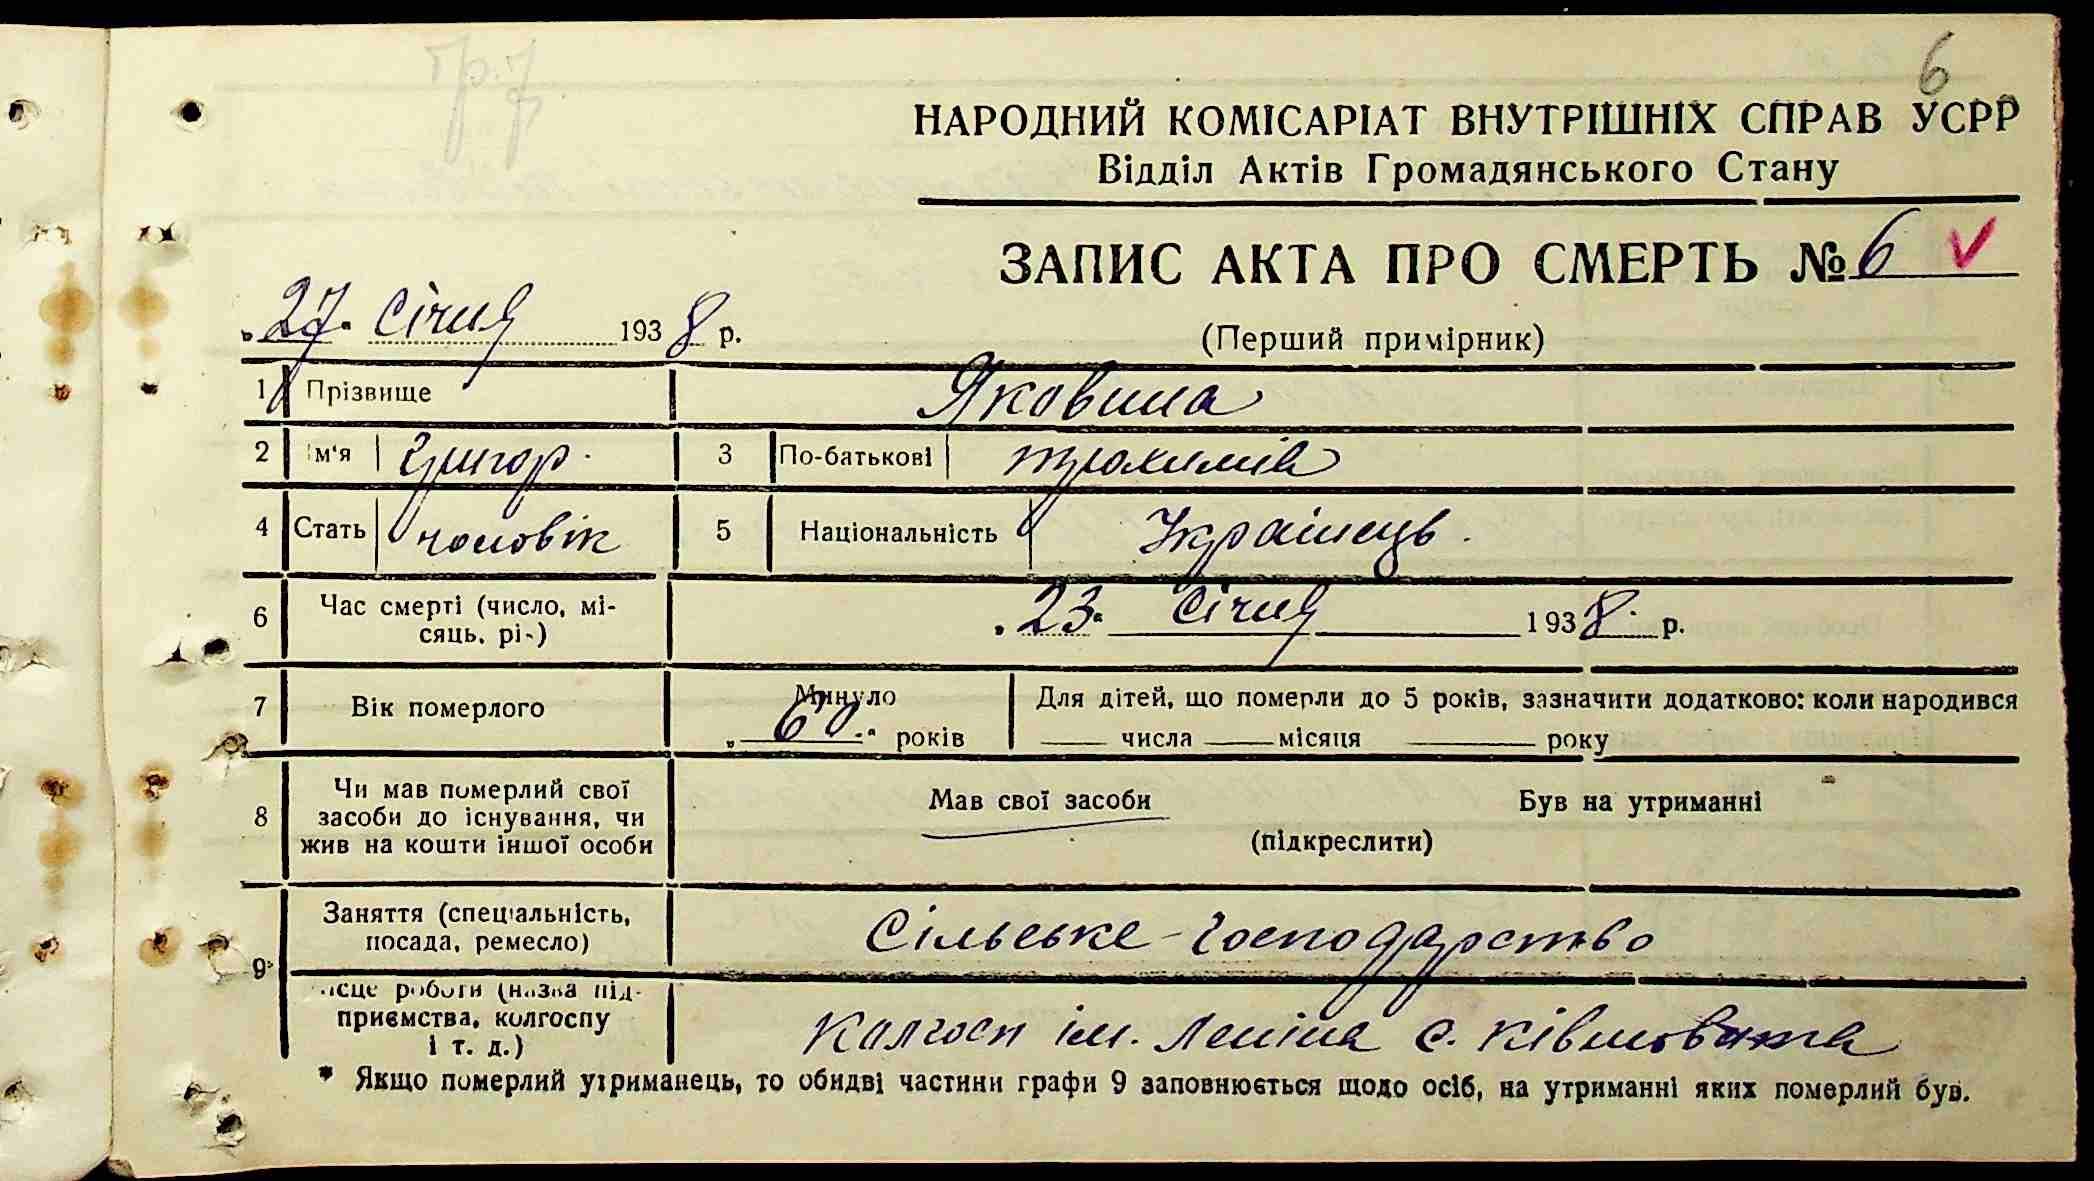 6
НАРОДНИЙ КОМІСАРІАТ ВНУТРІШНІХ СПРАВ УСРР
Відділ Актів Громадянського Стану
ЗАПИС АКТА ПРО СМЕРТЬ № 6
(Перший примірник)
„27“ Січня 1938 р.
1 Прізвище Яковина
2 Ім'я Григор. 3 По-батькові Трохимів
4 Стать чоловік 5 Національність Українець.
6 Час смерті (число, мі-
сяць, рік) „23“ Січня 1938 р.
7 Вік померлого Минуло „60“ років Для дітей, що померли до 5 років, зазначити додатково: коли народився
числа місяця року
8 Чи мав померлий свої
засоби до існування, чи
жив на кошти іншої особи
Мав свої засоби Був на утриманні
(підкреслити)
9 Заняття (спеціальність,
посада, ремесло) Сільське-господарство
Місце роботи (назва під-
приємства, колгоспу
і т. д.) Колгосп ім. Леніна с. Ківшовата
* Якщо померлий утриманець, то обидві частини графи 9 заповнюється щодо осіб, на утриманні яких померлий був.